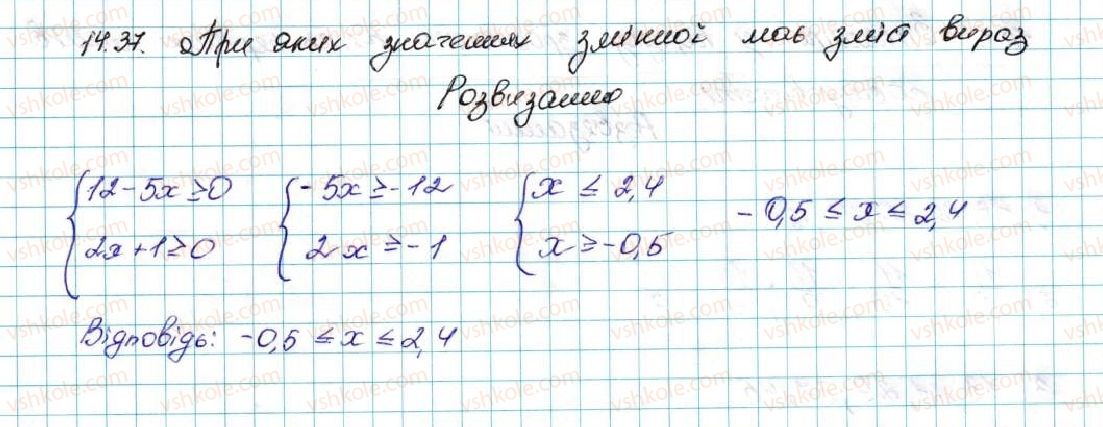 14.37. При яких значеннях змінної має зміст вираз
Розв'язання
{12-5x≥0 {-5x≥-12 {x ≤ 2,4
2x+1≥0 2x≥-1 x≥-0,5
-0,5 ≤ x ≤ 2,4
Відповідь: -0,5 ≤ x ≤ 2,4